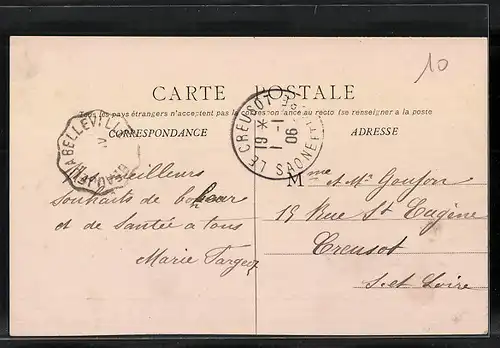 10
CARTE POSTALE
Tous les pays étrangers n'acceptent pas la correspondance au recto (se renseigner à la poste
CORRESPONDANCE
ADRESSE
LE CREUSOT
19 * 1-1 06
Meilleurs
souhaits de bonheur
et de Santée a tous
Marie
Mme et Mr Goujon
15 Rue St Eugène
Creusot
S. et Loire